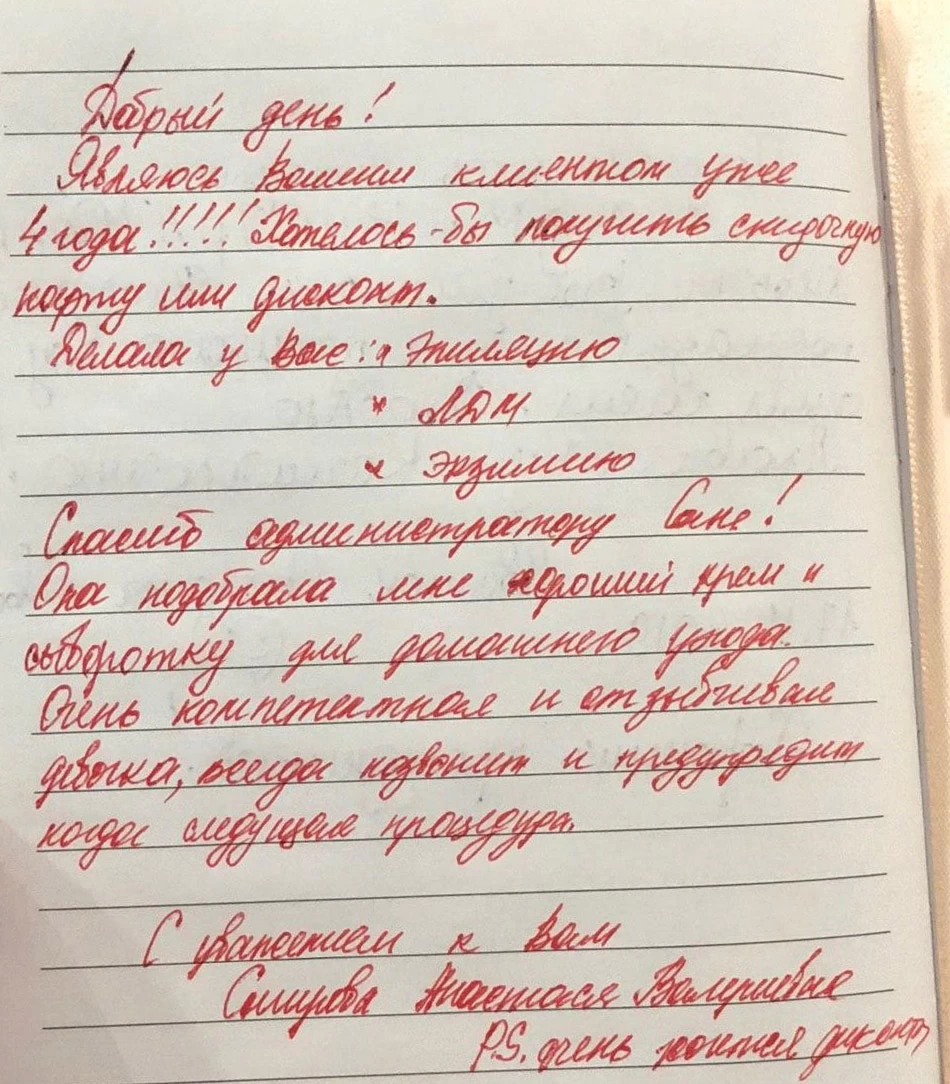 Добрый день!
Являюсь Вашим клиентом уже
4 года!!!!! Хотелось-бы получить скидочную
карту или дисконт.
Делала у Вас: * Эпиляцию
* ЛДМ
* Энзимию
Спасибо администратору Сане!
Она подобрала мне хороший крем и
сыворотку для домашнего ухода.
Очень компетентная и отзывчивая
девочка, всегда позвонит и предупредит
когда следущая процедура.
С уважением к Вам
Анастасия
P.S. очень хочется дисконт